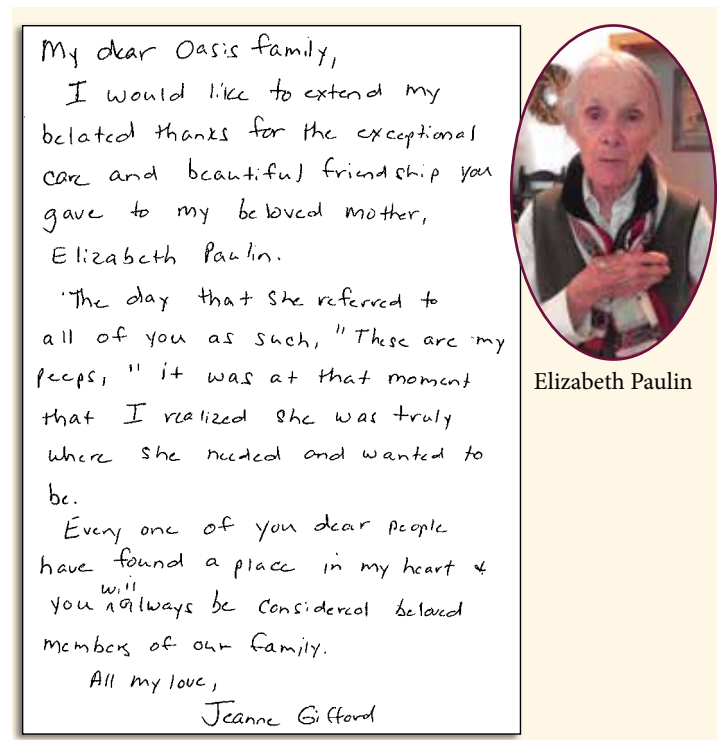 My dear Oasis family,
I would like to extend my
belated thanks for the exceptional
care and beautiful friendship you
gave to my beloved mother,
Elizabeth Paulin.
The day that she referred to
all of you as such, "These are my
peeps," it was at that moment
that I realized she was truly
where she needed and wanted to
be.
Every one of you dear people
have found a place in my heart &
you will always be considered beloved
members of our family.
All my love,
Jeanne Gifford
Elizabeth Paulin